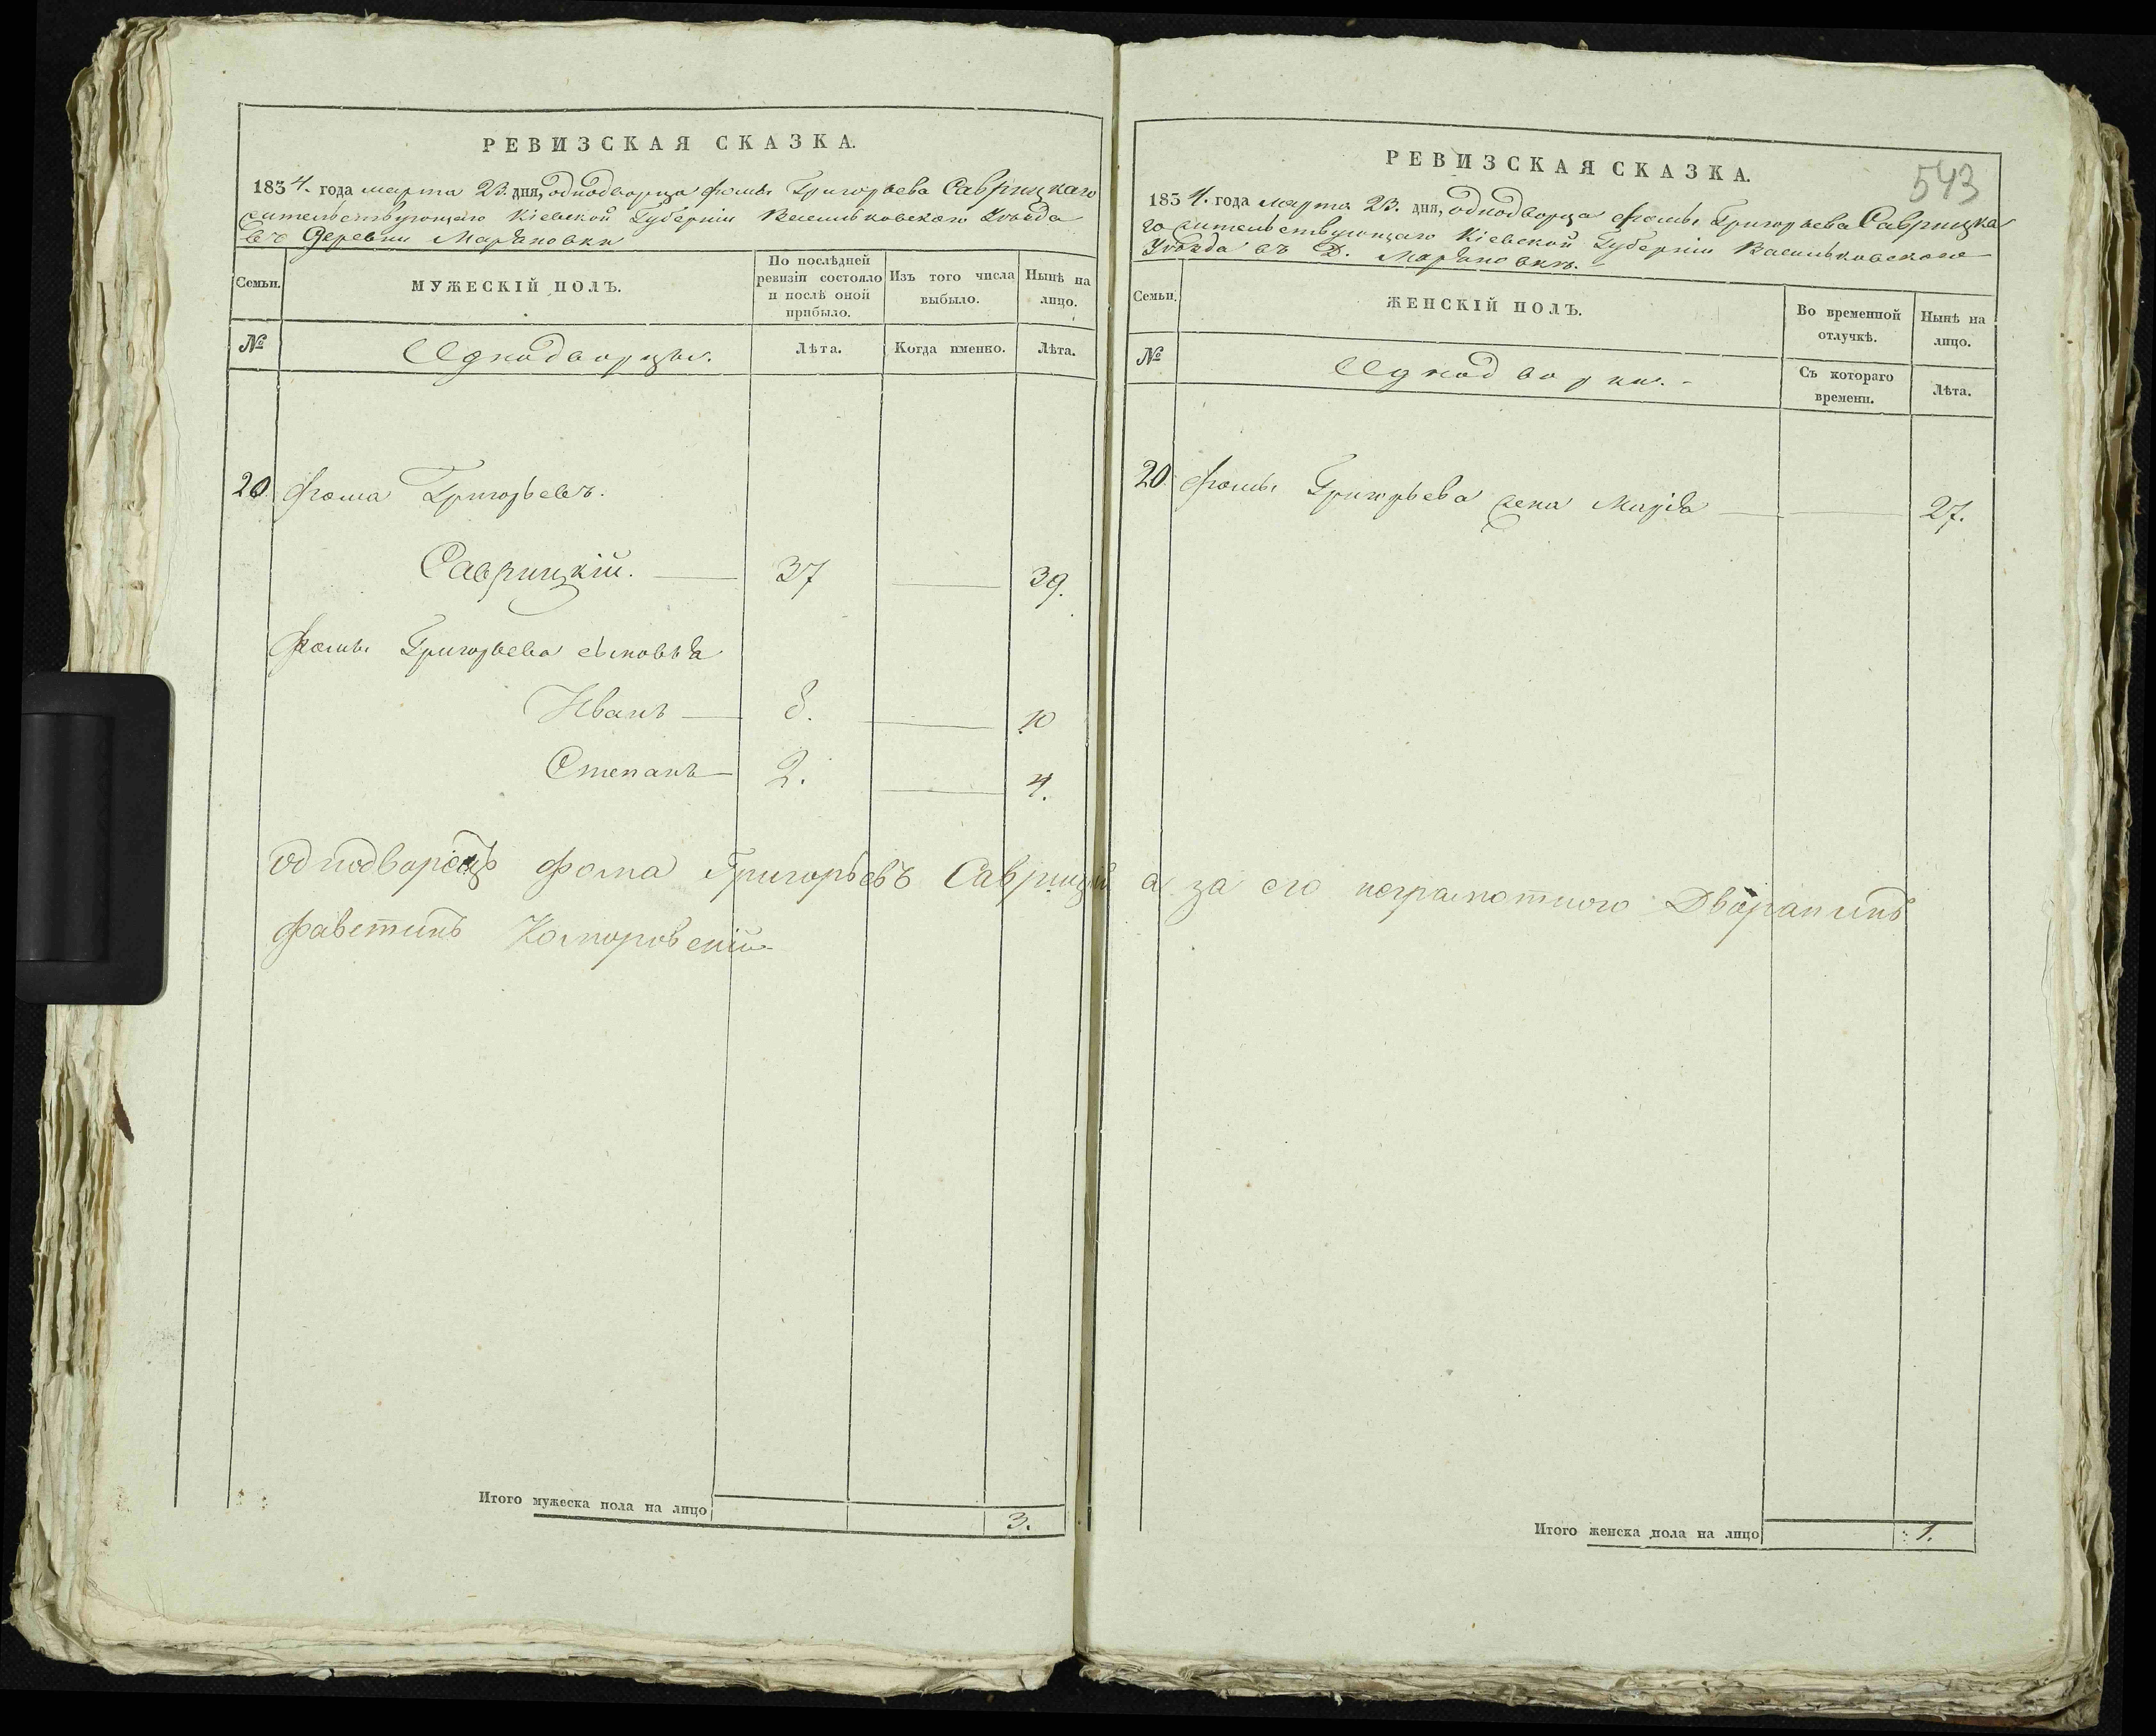 РЕВИЗСКАЯ СКАЗКА.
1834. года марта 23. дня, однодворца Фомы Григорьева Саврицкаго
жительствующаго Кіевской Губерніи Васильковскаго Уѣзда
въ Деревни Марьяновки
Семьи.
МУЖЕСКІЙ ПОЛЪ.
По послѣдней ревизіи состояло и послѣ оной прибыло.
Изъ того числа выбыло.
Нынѣ на лицо.
№
Однодворцы.
Лѣта.
Когда именно.
Лѣта.
20. Фома Григорьевъ.
Саврицкій. 37 39.
Фомы Григорьева сыновья
Иванъ 8. 10
Степанъ 2. 4.
Итого мужеска пола на лицо 3.
РЕВИЗСКАЯ СКАЗКА.
543
1834. года марта 23. дня, однодворца Фомы Григорьева Саврицка
го жительствующаго Кіевской Губерніи Васильковскаго
Уѣзда въ Д. Марьяновкѣ.
Семьи.
ЖЕНСКІЙ ПОЛЪ.
Во временной отлучкѣ.
Нынѣ на лицо.
№
Однодворки.
Съ котораго времени.
Лѣта.
20 Фомы Григорьева жена Марья 27.
однодворецъ Фома Григорьевъ Саврицкій а за его неграмотного Дворянинъ
Фавстинъ Коморовскій
Итого женска пола на лицо 1.